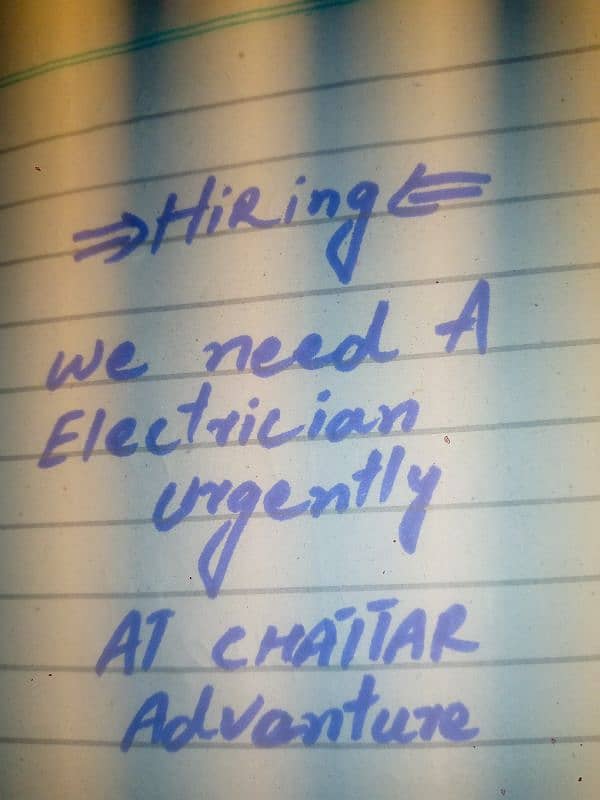 ⇒HiRing⇐
we need A
Electrician
urgently
AT CHATTAR
Advanture